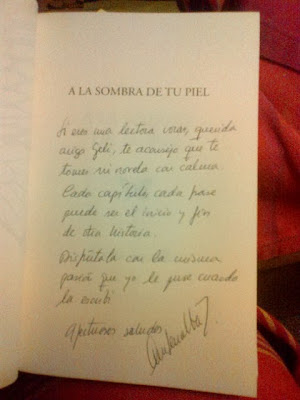 A LA SOMBRA DE TU PIEL
Si eres una lectora voraz, querida
amiga Geli, te aconsejo que te
tomes mi novela con calma.
Cada capítulo, cada frase
puede ser el inicio y fin
de otra historia.
Disfrútala con la misma
pasión que yo le puse cuando
la escribí.
Afectuosos saludos,